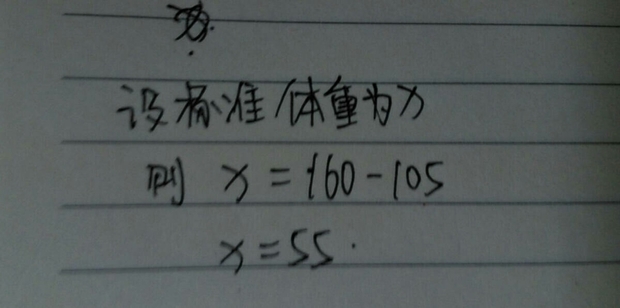 设标准体重为x
则 x=160-105
x=55.